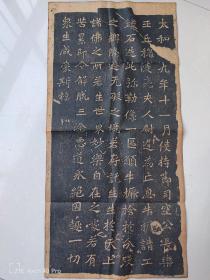 太和十九年十一月使持節司空公長樂
王丘穆陵亮夫人尉遲為亡息牛橛請工
鏤石造此彌勒像一區願牛橛捨於分段
之鄉騰遊无礙之境若存託生生於天上
諸佛之所若生世界妙樂自在之處若有
苦累即令解脫三塗惡道永絕因趣一切
眾生咸蒙斯福